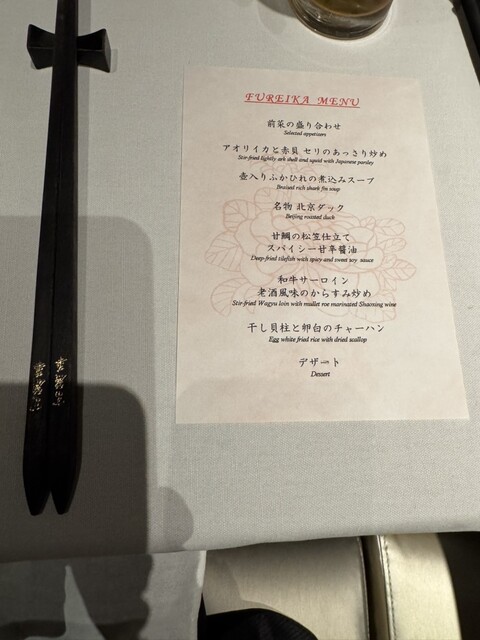 FUREIKA MENU
前菜の盛り合わせ
Selected appetizers
アオリイカと赤貝 セリのあっさり炒め
Stir-fried lightly ark shell and squid with Japanese parsley
壺入りふかひれの煮込みスープ
Braised rich shark fin soup
名物 北京ダック
Beijing roasted duck
甘鯛の松笠仕立て
スパイシー甘辛醬油
Deep-fried tilefish with spicy and sweet soy sauce
和牛サーロイン
老酒風味のからすみ炒め
Stir-fried Wagyu loin with mullet roe marinated Shaoxing wine
干し貝柱と卵白のチャーハン
Egg white fried rice with dried scallop
デザート
Dessert